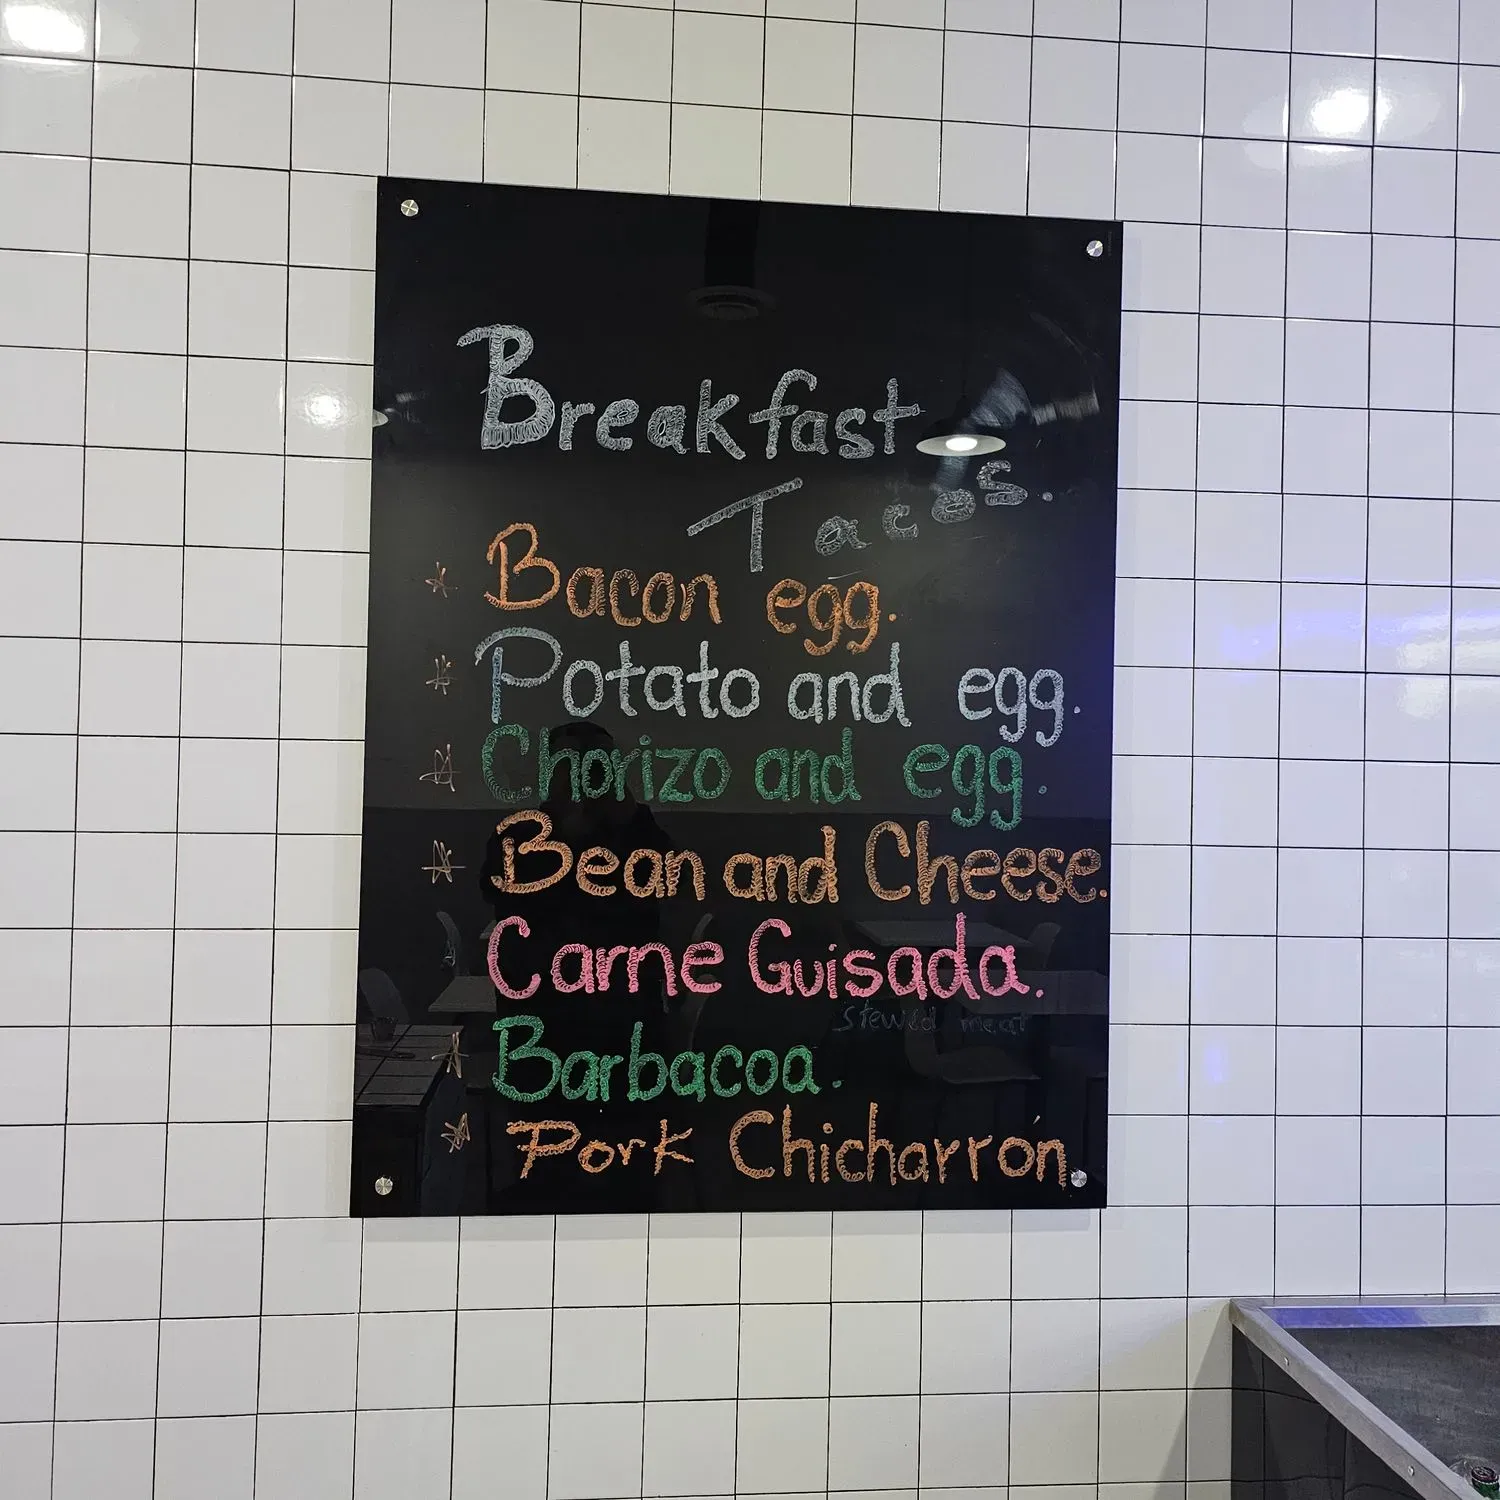 Breakfast
Tacos.
Bacon egg.
Potato and egg.
Chorizo and egg.
Bean and Cheese.
Carne Guisada.
stewed meat
Barbacoa.
Pork Chicharrón